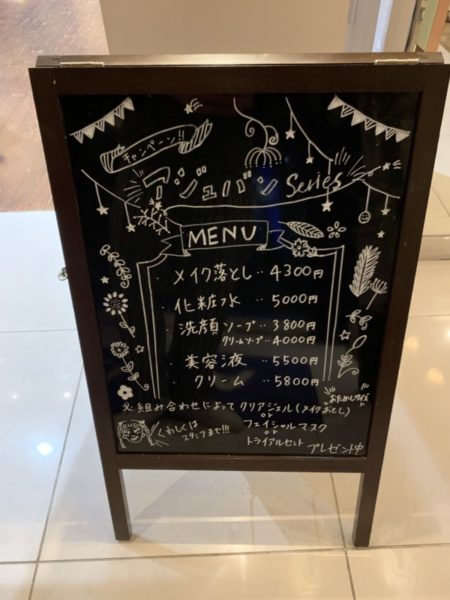 キャンペーン!!
アジュバン Series
MENU
メイク落とし‥4300円
化粧水‥5000円
洗顔ソープ‥3800円
クリームソープ‥4000円
美容液‥5500円
クリーム‥5800円
おためしサイズ
※組み合わせによって クリアジェル(メイクおとし)
or
フェイシャルマスク
or
トライアルセット
プレゼント中
くわしくは
スタッフまで!!!